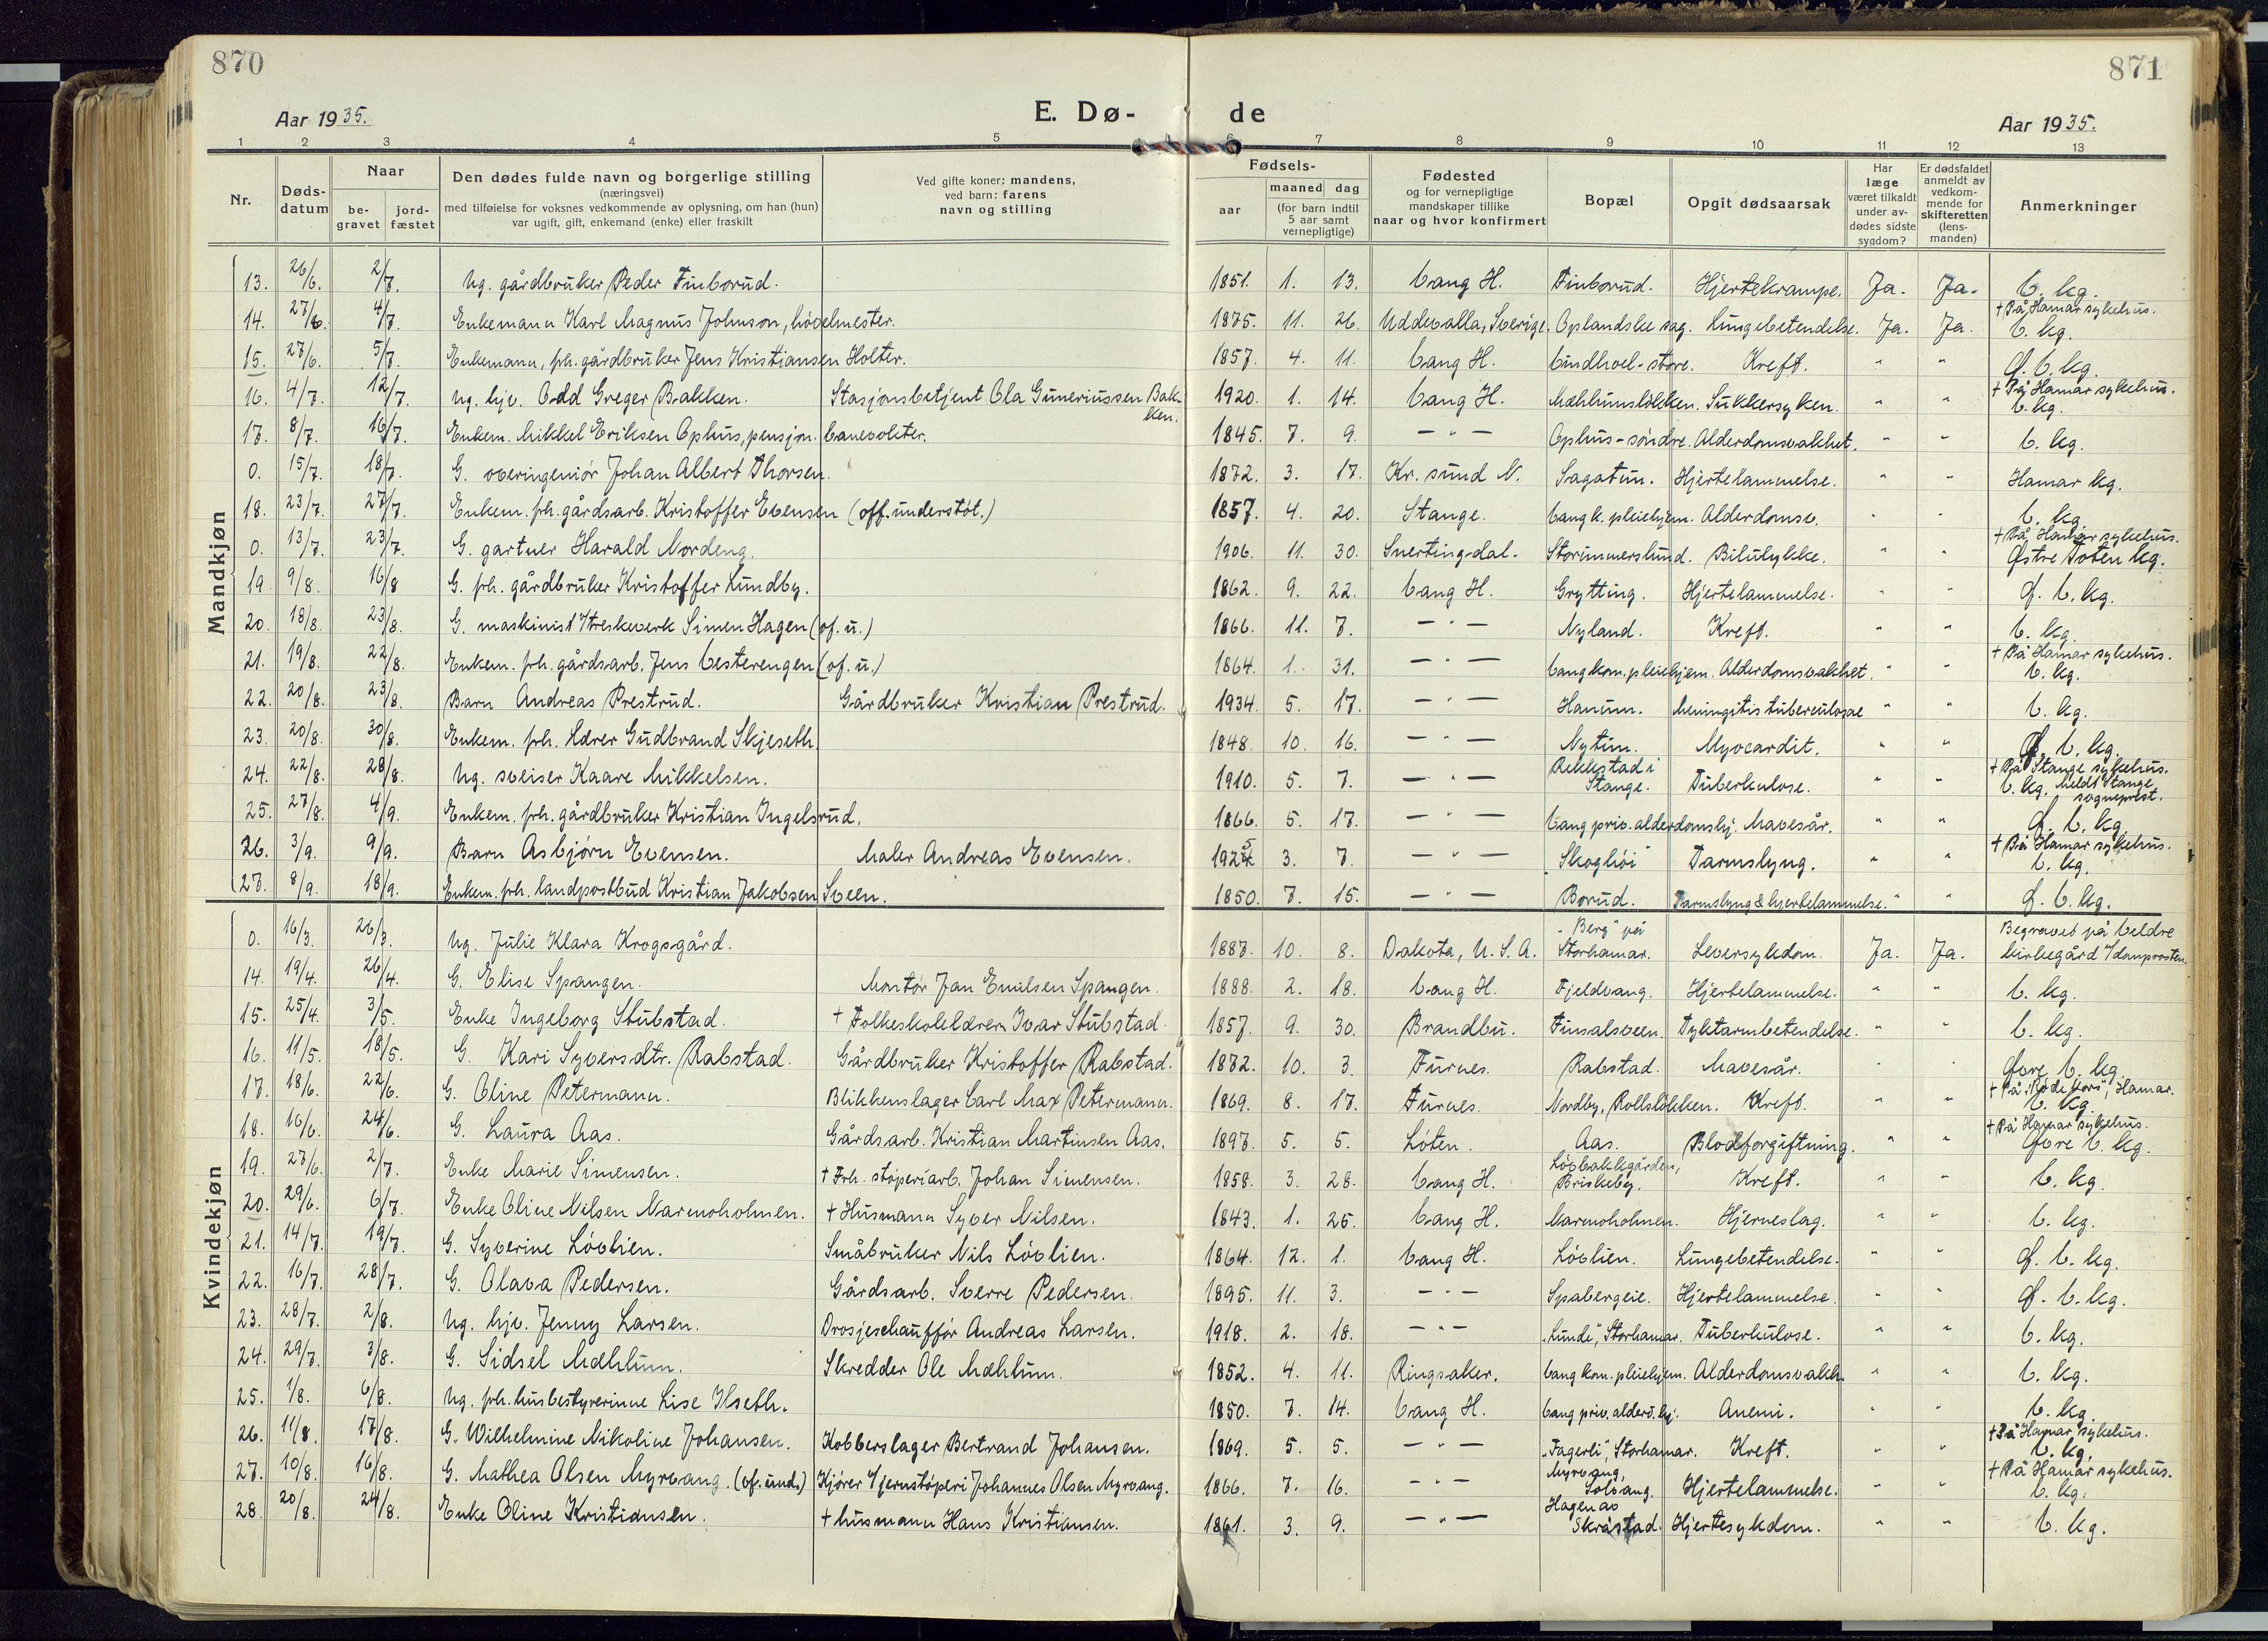 870
871
Aar 1935.
E. Dø-
de
Aar 1935.
1 2 3 4 5 6 7 8 9 10 11 12 13
Nr.
Døds-
datum
Naar
be-
gravet
jord-
fæstet
Den dødes fulde navn og borgerlige stilling
(næringsvei)
med tilføielse for voksnes vedkommende av oplysning, om han (hun)
var ugift, gift, enkemand (enke) eller fraskilt
Ved gifte koner: mandens,
ved barn: farens
navn og stilling
Fødsels-
aar
maaned dag
(for barn indtil
5 aar samt
vernepligtige)
Fødested
og for vernepligtige
mandskaper tillike
naar og hvor konfirmert
Bopæl
Opgit dødsaarsak
Har
læge
været tilkaldt
under av-
dødes sidste
sygdom?
Er dødsfaldet
anmeldt av
vedkom-
mende for
skifteretten
(lens-
manden)
Anmerkninger
Mandkjøn
13. 26/6. 2/7. Ug. gårdbruker Peder Finborud. 1851. 1. 13. Vang H. Finborud. Hjertekrampe. Ja. Ja. V. kg.
14. 27/6. 4/7. Enkemann Karl Magnus Johnson, hövelmester. 1875. 11. 26. Uddevalla, Sverige. Oplandske sag. Lungebetendelse. Ja. Ja. + På Hamar sykehus. V. kg.
15. 27/6. 5/7. Enkemann, fh. gårdbruker Jens Kristiansen Holter. 1857. 4. 11. Vang H. Vindhoel-store. Kreft. " " Ø. V. kg.
16. 4/7. 12/7. Ug. hjv. Odd Greger Bakken. Stasjonsbetjent Ola Guneriussen Bakken. 1920. 1. 14. Vang H. Mæhlumslökken. Sukkersyken. " " + På Hamar sykehus. V. kg.
17. 8/7. 16/7. Enkem. Mikkel Eriksen Ophus, pensjon. banevokter. 1845. 7. 9. — " — Ophus-söndre. Alderdomsvakhet. " " V. kg.
0. 15/7. 18/7. G. overingeniör Johan Albert Thorsen. 1872. 3. 17. Kr. sund N. Sagatun. Hjertelammelse. " " Hamar kg.
18. 23/7. 27/7. Enkem. fh. gårdsarb. Kristoffer Evensen (off. understöt.) 1857. 4. 20. Stange. Vang k. pleiehjem. Alderdomsv. " " V. kg.
0. 13/7. 23/7. G. gartner Harald Nordeng. 1906. 11. 30. Snertingdal. Storimmerslund. Bilulykke. " " + På Hamar sykehus. Østre Toten kg.
19 9/8. 16/8 G. fh. gårdbruker Kristoffer Lundby. 1862. 9. 22. Vang H. Grytting. Hjertelammelse. " " Ø. V. kg.
20. 18/8. 23/8. G. maskinist v/treskeverk Simen Hagen (of. u.) 1866. 11. 7. — " — Nyland. Kreft. " " V. kg.
21. 19/8. 22/8. Enkem. fh. gårdsarb. Jens Vesterengen (of. u.) 1864. 1. 31. — " — Vang kom. pleiehjem. Alderdomsvakhet. " " + På Hamar sykehus. V. kg.
22. 20/8. 23/8. Barn Andreas Prestrud. Gårdbruker Kristian Prestrud. 1934. 5. 17. — " — Hanum. Meningitis tuberculosae " " V. kg.
23. 20/8. 30/8. Enkem. fh. lærer Gudbrand Skjeseth. 1848. 10. 16. — " — Nytun. Myocardit. " " Ø. V. kg.
24. 22/8. 28/8. Ug. sveiser Kaare Mikkelsen. 1910. 5. 7. — " — Rekkstad i Stange. Tuberkulose. " " + På Stange sykehus. V. kg. Meldt Stange sogneprest.
25. 27/8. 4/9. Enkem. fh. gårdbruker Kristian Ingelsrud. 1866. 5. 17. — " — Vang priv. alderdomshj. Mavesår. " " Ø. V. kg.
26. 3/9. 9/9. Barn Asbjörn Evensen. Maler Andreas Evensen. 1925. 3. 7. — " — "Skoghöi" Tarmslyng. " " + På Hamar sykehus. V. kg.
27. 8/9. 18/9. Enkem. fh. landpostbud Kristian Jakobsen Sveen. 1850. 7. 15. — " — Borud. Tarmslyng & hjertelammelse. " " Ø. V. kg.
Kvindekjøn
0. 16/3. 26/3. Ug. Julie Klara Krogsgård. 1887. 10. 8. Dakota, U. S. A. "Berg" på Storhamar. Leversykdom. Ja. Ja. Begravet på Veldre kirkegård v/domprosten.
14. 19/4. 26/4. G. Elise Spangen. Montör Jan Emilsen Spangen. 1888. 2. 18. Vang H. Fjeldvang. Hjertelammelse. " " V. kg.
15. 25/4. 3/5. Enke Ingeborg Stubstad. + Folkeskolelærer Ivar Stubstad. 1857. 9. 30. Brandbu. Finsalsveen. Tyktarmbetendelse. " " V. kg.
16. 11/5. 18/5. G. Kari Syversdtr. Rabstad. Gårdbruker Kristoffer Rabstad. 1872. 10. 3. Furnes. Rabstad. Mavesår. " " Øvre V. kg.
17. 18/6. 22/6. G. Oline Petermann. Blikkenslager Carl Max Petermann. 1869. 8. 17. Furnes. Nordby, Rollslökken. Kreft. " " + På "Röde Kors", Hamar. V. kg.
18. 16/6. 24/6. G. Laura Aas. Gårdsarb. Kristian Martinsen Aas. 1897. 5. 5. Löten. Aas. Blodforgiftning. " " + På Hamar sykehus. Øvre V. kg.
19. 27/6. 2/7. Enke Marie Simensen. + Frh. stöperiarb. Johan Simensen. 1858. 3. 28. Vang H. Lövbakkgården, Briskeby. Kreft. " " V. kg.
20. 29/6. 6/7. Enke Oline Nilsen Narmoholmen. + Husmann Syver Nilsen. 1843. 1. 25. Vang H. Narmoholmen. Hjerneslag. " " V. kg.
21. 14/7. 19/7. G. Syverine Lövlien. Småbruker Nils Lövlien. 1864. 12. 1. Vang H. Lövlien. Lungebetendelse. " " Ø. V. kg.
22. 16/7. 28/7. G. Olava Pedersen. Gårdsarb. Sverre Pedersen. 1895. 11. 3. — " — Spabergeie. Hjertelammelse. " " Ø. V. kg.
23. 28/7. 2/8. Ug. hjv. Jenny Larsen. Drosjechafför Andreas Larsen. 1918. 2. 18. — " — "Lunde", Storhamar. Tuberkulose. " " V. kg.
24. 29/7. 3/8. G. Sidsel Mæhlum. Skredder Ole Mæhlum. 1852. 4. 11. Ringsaker. Vang kom. pleiehjem. Alderdomsvakh. " " V. kg.
25. 1/8. 6/8. Ug. fh. husbestyrerinne Lise Ilseth. 1850. 7. 14. Vang H. Vang priv. alderd. hj. Anemi. " " V. kg.
26. 11/8. 17/8. G. Wilhelmine Nikoline Johansen. Kobberslager Bertrand Johansen. 1869. 5. 5. — " — "Fagerli", Storhamar. Kreft. " " + På Hamar sykehus. V. kg.
27. 10/8. 16/8. G. Mathea Olsen Myrvang. (of. und.) Kjörer v/jernstöperi Johannes Olsen Myrvang. 1866. 7. 16. — " — Myrvang, Solvang. Hjertelammelse. " " + På Hamar sykehus. V. kg.
28. 20/8. 24/8. Enke Oline Kristiansen. + husmann Hans Kristiansen. 1861. 3. 9. — " — Hagen av Skråstad. Hjertesykdom. " " V. kg.